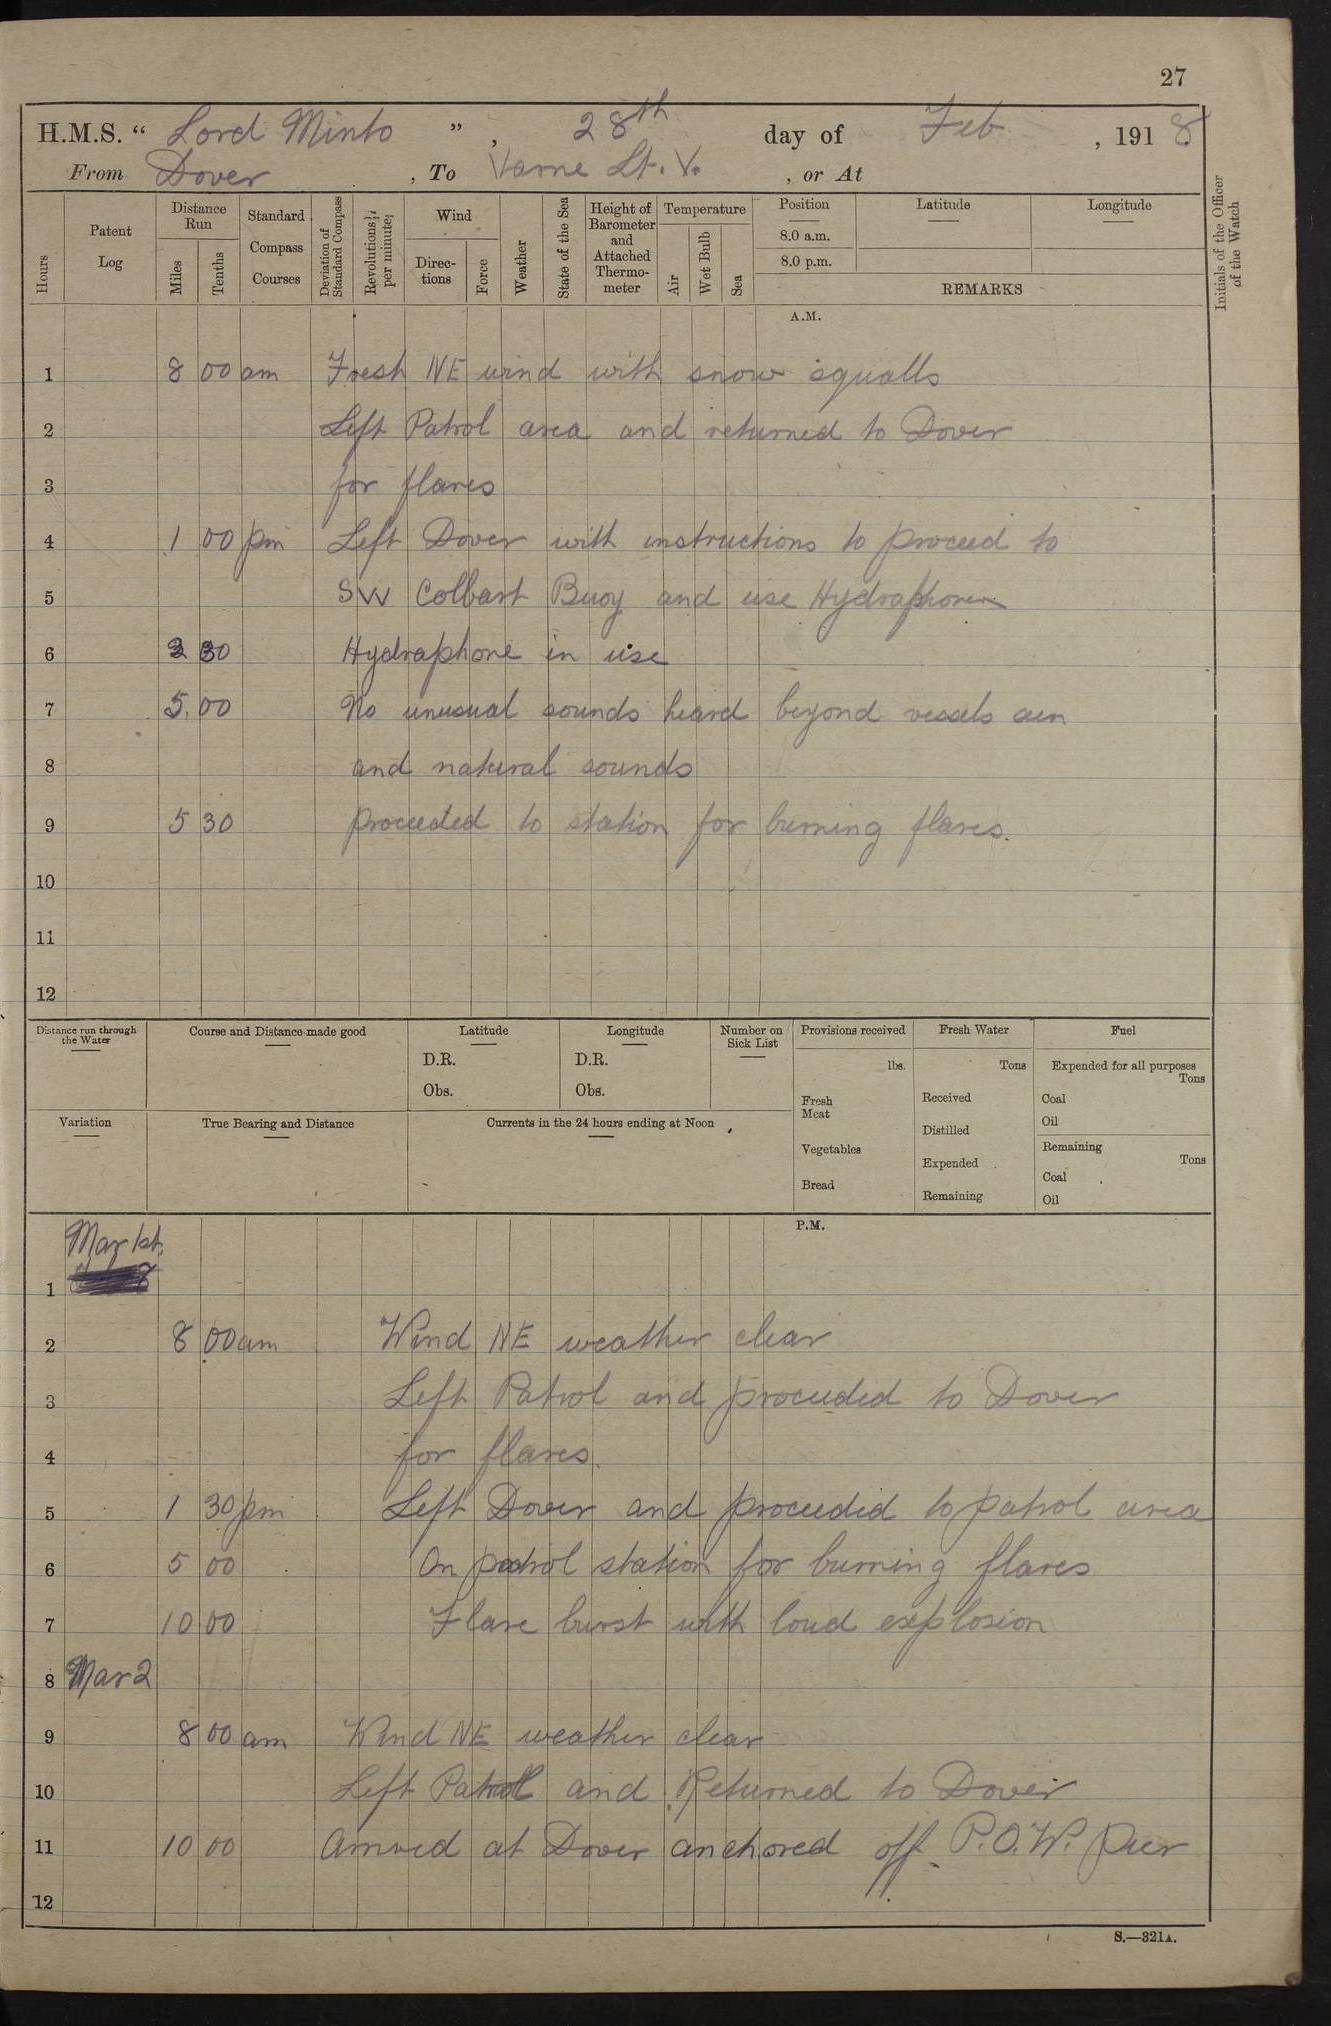 27
H.M.S. " Lord Minto ", 28th day of Feb, 1918
From Dover, To Varne Lt. V., or At
Hours
Patent Log
Distance Run
Miles
Tenths
Standard Compass Courses
Deviation of Standard Compass
Revolutions per minute
Wind
Directions
Force
Weather
State of the Sea
Height of Barometer and Attached Thermometer
Temperature
Air
Wet Bulb
Sea
Position
8.0 a.m.
8.0 p.m.
Latitude
Longitude
REMARKS
Initials of the Officer of the Watch
A.M.
1 8 00 am Fresh NE wind with snow squalls
2 Left Patrol area and returned to Dover
3 for flares
4 1 00 pm Left Dover with instructions to proceed to
5 SW Colbart Buoy and use Hydraphone
6 30 Hydraphone in use
7 5.00 No unusual sounds heard beyond vessels
8 and natural sounds
9 5 30 proceeded to station for burning flares.
10
11
12
Distance run through the Water
Course and Distance made good
Latitude
D.R.
Obs.
Longitude
D.R.
Obs.
Number on Sick List
Provisions received
lbs.
Fresh Meat
Vegetables
Bread
Fresh Water
Tons
Received
Distilled
Expended
Remaining
Fuel
Expended for all purposes
Tons
Coal
Oil
Remaining
Tons
Coal
Oil
Variation
True Bearing and Distance
Currents in the 24 hours ending at Noon
P.M.
Mar 1st.
1
2 8 00 am Wind NE weather clear
3 Left Patrol and proceeded to Dover
4 for flares.
5 1 30 pm Left Dover and proceeded to patrol area
6 5 00 On patrol station for burning flares
7 10 00 Flare burst with loud explosion
8 Mar 2
9 8 00 am Wind NE weather clear
10 Left Patrol and Returned to Dover
11 10 00 Arrived at Dover anchored off P.O.W. pier
12
S.—321A.